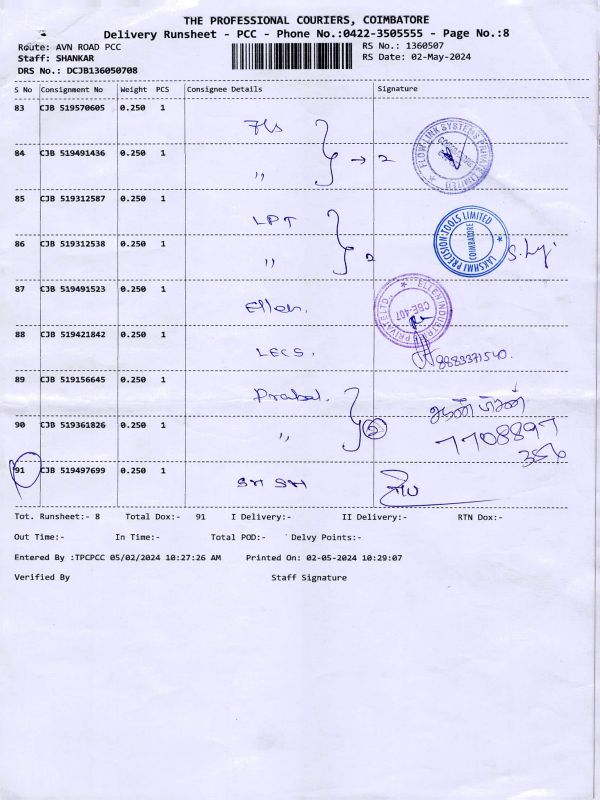 THE PROFESSIONAL COURIERS, COIMBATORE
Delivery Runsheet - PCC - Phone No.:0422-3505555 - Page No.:8
Route: AVN ROAD PCC
RS No.: 1360507
Staff: SHANKAR
RS Date: 02-May-2024
DRS No.: DCJB136050708
S No Consignment No Weight PCS Consignee Details Signature
83 CJB 519570605 0.250 1 Fls
FLOW LINK SYSTEMS PRIVATE LIMITED
84 CJB 519491436 0.250 1 " → 2
85 CJB 519312587 0.250 1 LPT
LAKSHMI PRECISION TOOLS LIMITED
COIMBATORE
86 CJB 519312538 0.250 1 " 2
87 CJB 519491523 0.250 1 Ellen.
ELLEN INDUSTRIE PRIVATE LTD.
CBE-407
88 CJB 519421842 0.250 1 LECS. 8883371540.
89 CJB 519156645 0.250 1 Prabal.
90 CJB 519361826 0.250 1 " 2 7708897
356
91 CJB 519497699 0.250 1 SM SM
Tot. Runsheet:- 8 Total Dox:- 91 I Delivery:- II Delivery:- RTN Dox:-
Out Time:- In Time:- Total POD:- Delvy Points:-
Entered By :TPCPCC 05/02/2024 10:27:26 AM Printed On: 02-05-2024 10:29:07
Verified By Staff Signature